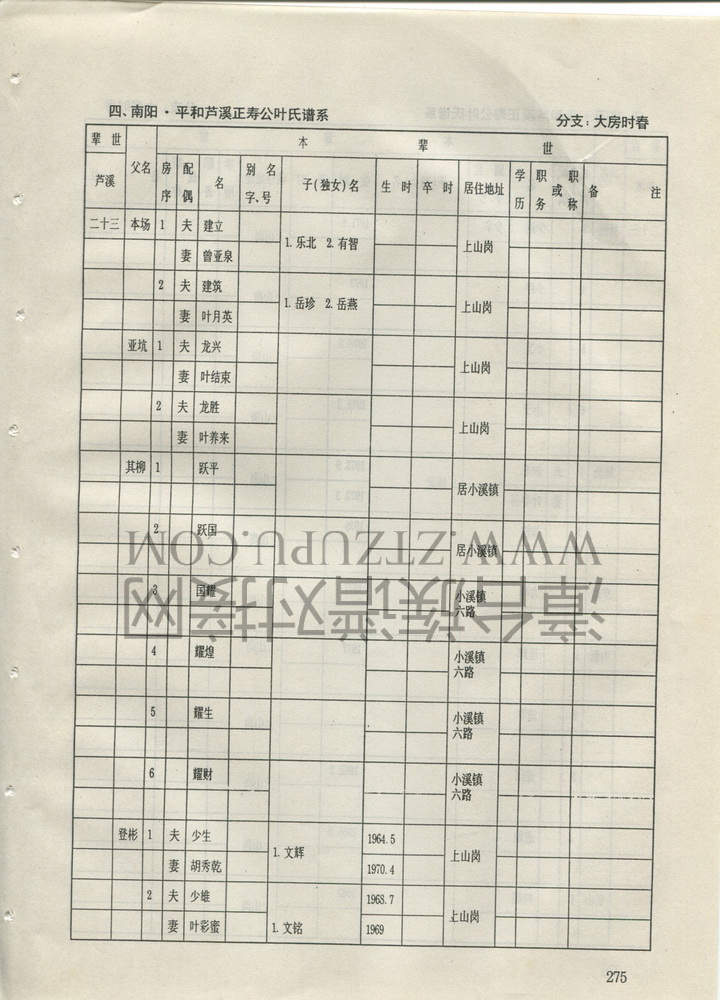 四、南阳·平和芦溪正寿公叶氏谱系 分支：大房时春
辈世 本辈世
芦溪 父名 房序 配偶 名 别名字、号 子(独女)名 生时 卒时 居住地址 学历 职或职务称 备注
二十三 本场 1 夫 建立 1.乐北 2.有智 上山岗
妻 曾亚泉
2 夫 建筑 1.岳珍 2.岳燕 上山岗
妻 叶月英
亚坑 1 夫 龙兴 上山岗
妻 叶结束
2 夫 龙胜 上山岗
妻 叶养来
其柳 1 跃平 居小溪镇
2 跃国 居小溪镇
3 国耀 小溪镇六路
4 耀煌 小溪镇六路
5 耀生 小溪镇六路
6 耀财 小溪镇六路
登彬 1 夫 少生 1.文辉 1964.5 上山岗
妻 胡秀乾 1970.4
2 夫 少雄 1968.7 上山岗
妻 叶彩蜜 1.文铭 1969
275
WWW.ZTZUPU.COM
漳台族谱对接网